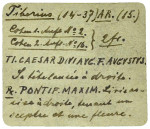 Tiberius. (14-37) AR. (15.)
Cohen 1. Aufl. No 2.
Cohen 2. Aufl. No 16. } 2 fr.
TI. CAESAR DIVI AVG. F. AVGVSTVS.
Sa tête laurée à droite.
R. PONTIF. MAXIM. Livie as-
sise à droite, tenant un
sceptre et une fleur.